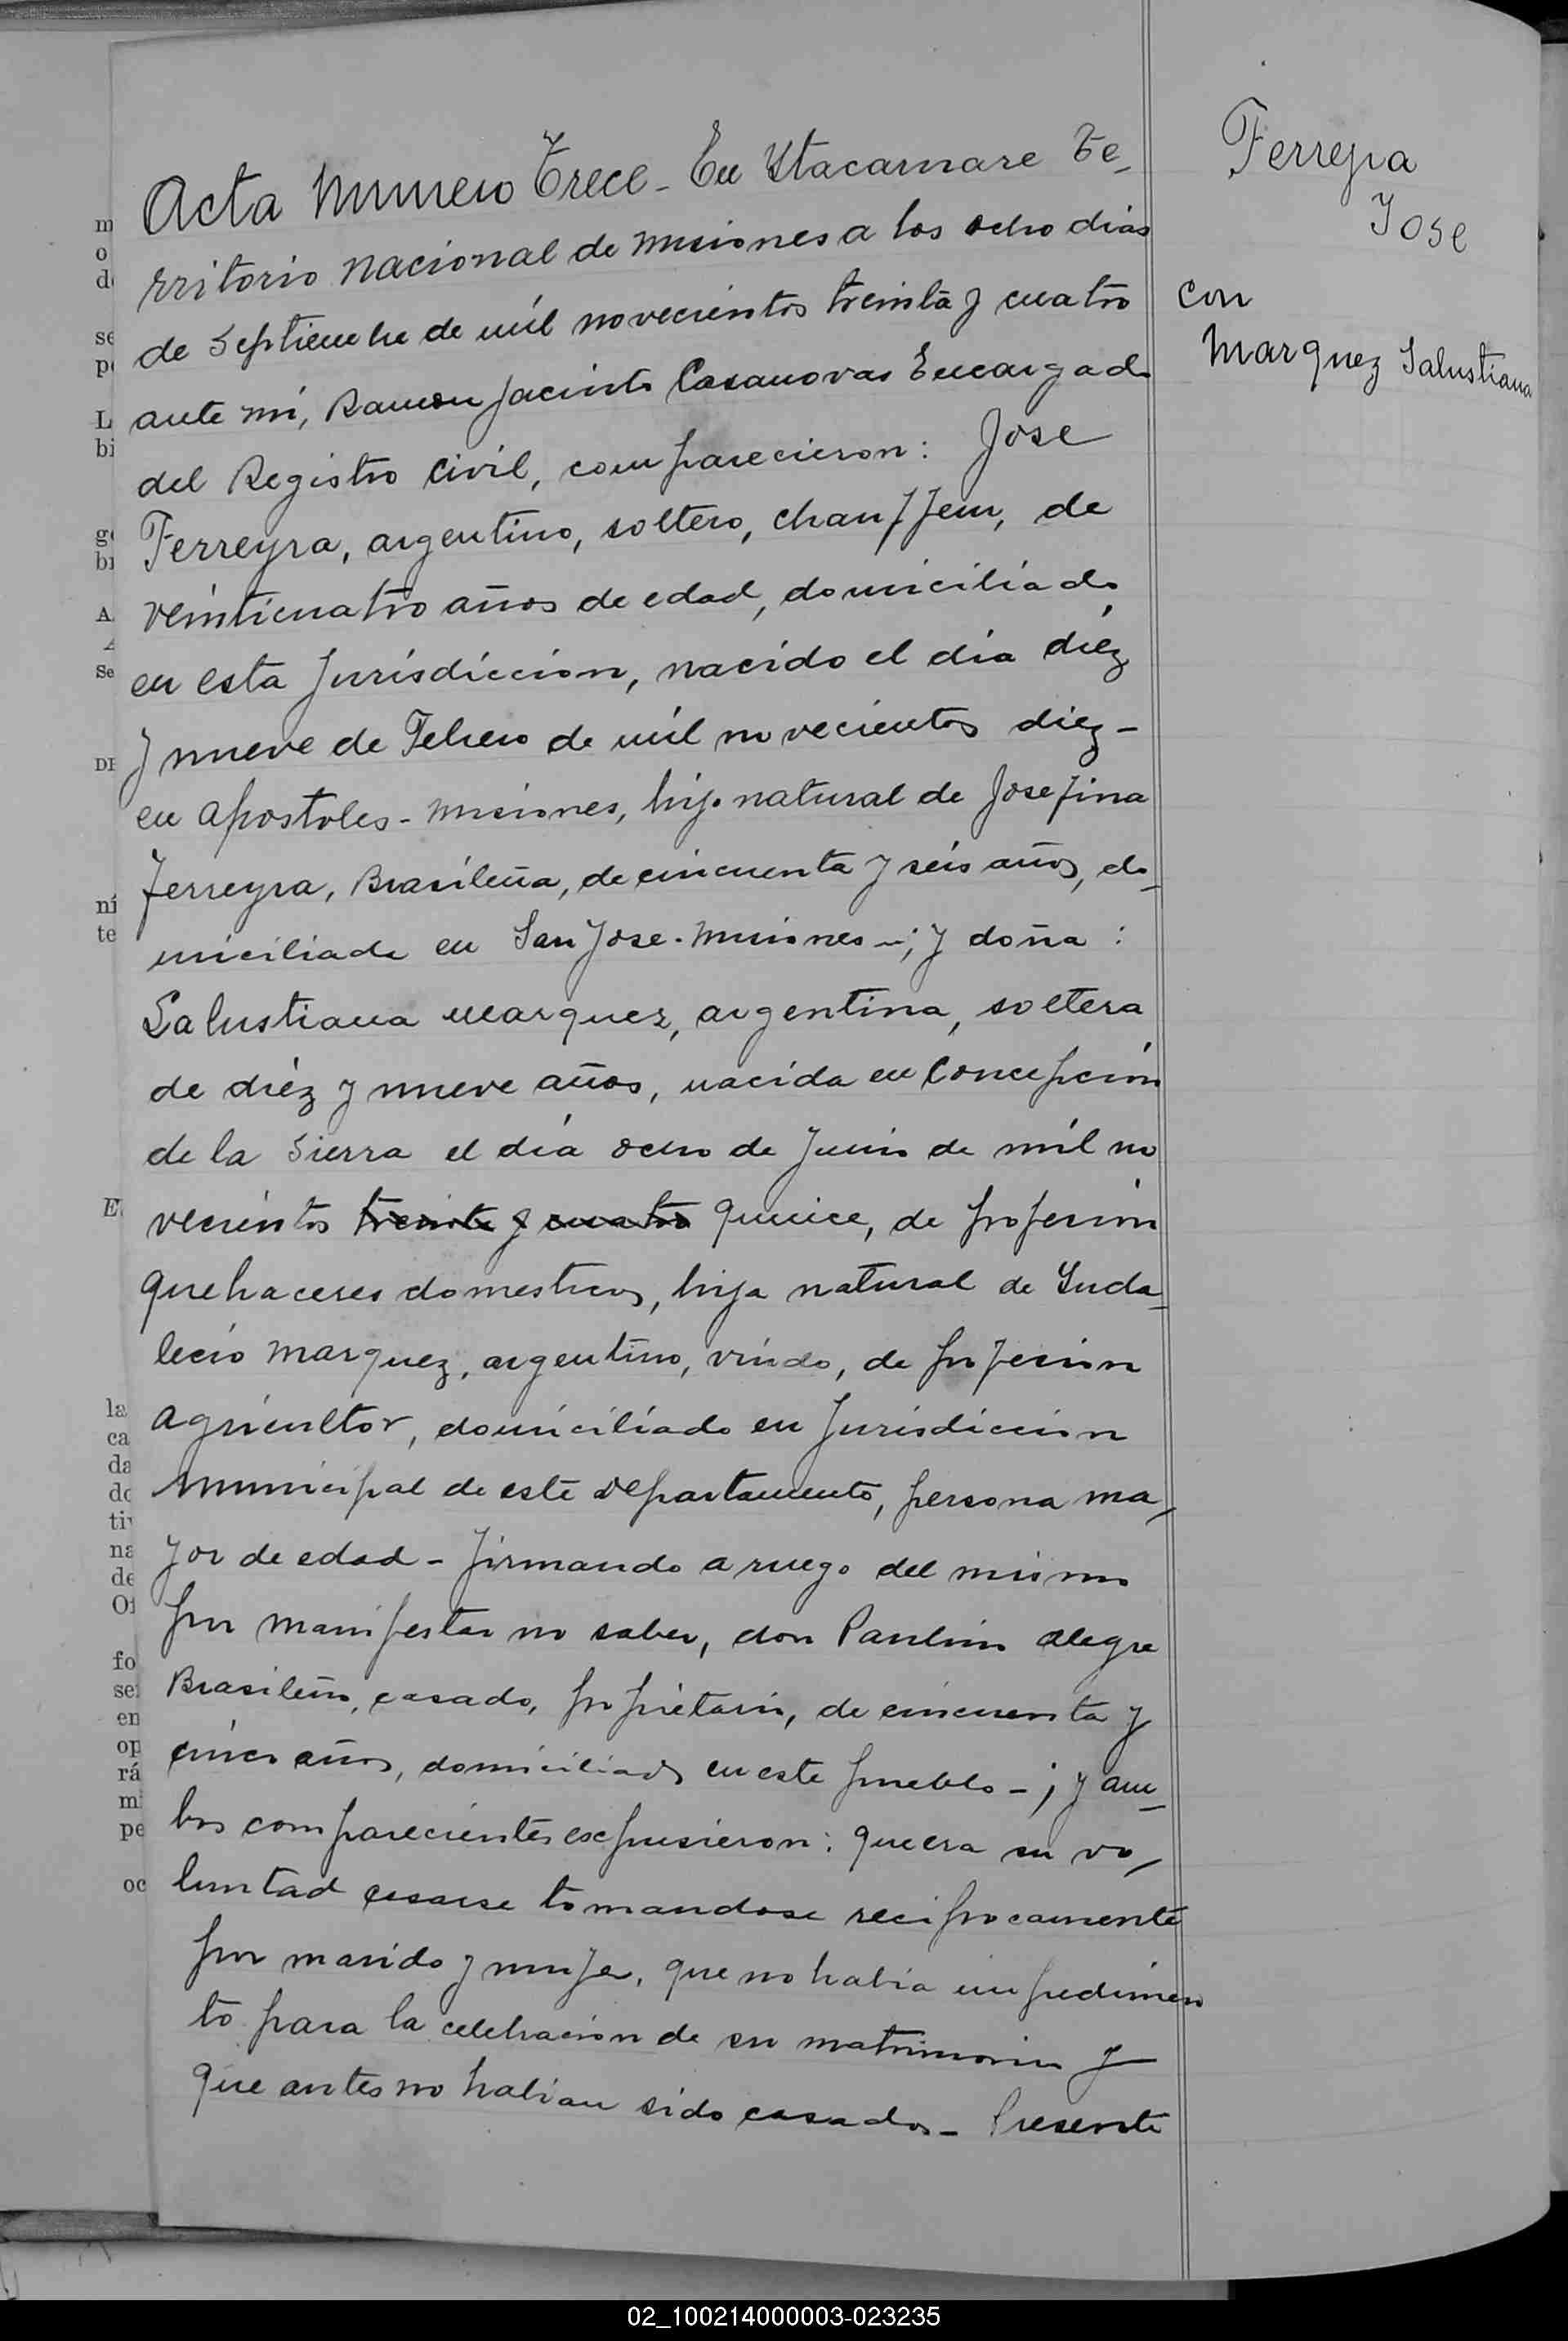 Acta Numero Trece - En Itacaruare Te-
rritorio Nacional de Misiones a los ocho dias
de Septiembre de mil novecientos treinta y cuatro
ante mí, Ramon Jacinto Casanovas Encargado
del Registro Civil, comparecieron: Jose
Ferreyra, argentino, soltero, chauffeur, de
veinticuatro años de edad, domiciliado
en esta Jurisdiccion, nacido el día diéz
y nueve de Febrero de mil novecientos diez -
en Apostoles - Misiones, hijo natural de Josefina
Ferreyra, Brasileña, de cincuenta y seis años, do-
miciliada en San Jose - Misiones -; y doña :
Salustiana Marquez, argentina, soltera
de diéz y nueve años, nacida en Concepción
de la Sierra el día ocho de Junio de mil no
vecientos treinta y cuatro quince, de profesión
quehaceres domesticos, hija natural de Inda-
lecio Marquez, argentino, viudo, de profesion
agricultor, domiciliado en Jurisdiccion
Municipal de este departamento, persona ma-
yor de edad - firmando a ruego del mismo
por manifestar no saber, don Paulino Alegre
Brasileño, casado, propietario, de cincuenta y
cinco años, domiciliado en este pueblo -; y am-
bos comparecientes expusieron: que era su vo-
luntad casarse tomandose reciprocamente
por marido y mujer, que no habia impedimen
to para la celebracion de su matrimonio y
que antes no habian sido casados - Presente
Ferreyra
Jose
con
Marquez Salustiana
m
o
de
se
pe
L
bi
ge
br
A
Se
DE
ni
te
E
la
ca
da
do
tiv
na
de
Of
fo
se
en
op
rá
mi
pe
oc
02_100214000003-023235